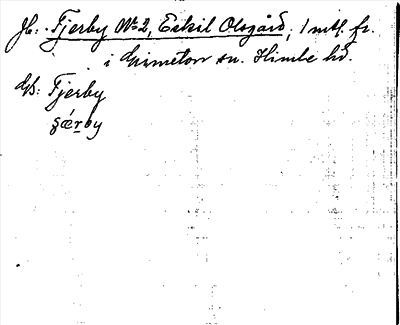 Jb: Fjerby No 2, Eskil Olsgård, 1 mtl. fr.
i Grimeton sn. Himle hd.
Gb: Fjerby
særby